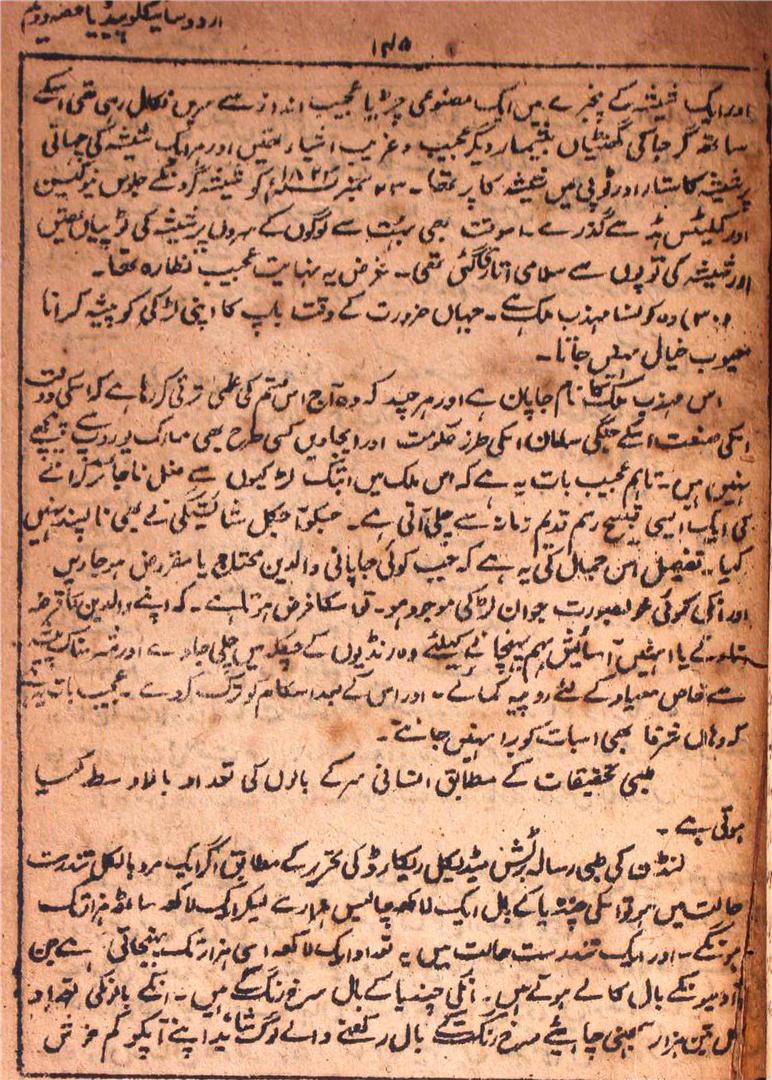 اردو سائیکلوپیڈیا حصہ دوئم
۱۴۵
اور ایک شیشہ کے پنجرے میں ایک مصنوعی چڑیا عجیب انداز سے سریں نکال رہی تھی اسکے
ساتھ گرجا کی گھنٹیاں بیشمار دیگر عجیب و غریب اشیاء تھیں اور ہر ایک شیشہ گر کی چھاتی
پر شیشہ کا ستار اور ٹوپی میں شیشہ کا پر تھا۔ ۲۳ ستمبر ۱۸۲۳ء کو شیشہ گروں کے جلوس نیوکیسل
اور گیٹس ہڈ سے گذرے۔ اسوقت بھی بہت سے لوگوں کے سروں پر شیشہ کی ٹوپیاں تھیں
اور شیشہ کی توپوں سے سلامی اتاری گئی تھی۔ غرض یہ نہایت عجیب نظارہ تھا۔
(۳۰) وہ کونسا مہذب ملک ہے۔ جہاں ضرورت کے وقت باپ کا اپنی لڑکی کو پیشہ کرانا
معیوب خیال نہیں جاتا۔
اس مہذب ملک کا نام جاپان ہے اور ہر چند کہ وہ آج اس قسم کی علمی ترقی کر رہا ہے کہ اسکی دولت
اسکی صنعت اسکے جنگی سامان اسکی طرز حکومت اور ایجادیں کسی طرح بھی ممالک یورپ سے پیچھے
نہیں ہیں۔ تاہم عجیب بات یہ ہے کہ اس ملک میں ابتک لڑکیوں سے فعل ناجائز کرانے
کی ایک ایسی قبیح رسم قدیم زمانہ سے چلی آتی ہے۔ جسکو آجکل شائستگی نے بھی ناپسند نہیں
کیا۔ تفصیل اس اجمال کی یہ ہے کہ جب کوئی جاپانی والدین محتاج یا مقروض ہو جاویں
اور انکی کوئی خوبصورت جوان لڑکی موجود ہو۔ تو اسکا فرض ہوتا ہے۔ کہ اپنے والدین کا قرضہ
اتارنے یا انہیں آسائیش بہم پہنچانے کیلئے وہ رنڈیوں کے چکلہ میں چلی جاوے اور شرمناک پیشہ
سے خاص معیاد کے لئے روپیہ کمائے۔ اور اس کے بعد اسکام کو ترک کر دے۔ عجیب بات یہ ہے
کہ وہاں شرفا بھی اسبات کو برا نہیں جانتے۔
طبی تحقیقات کے مطابق انسانی سر کے بالوں کی تعداد بالاوسط کیا
ہوتی ہے۔
لنڈن کی طبی رسالہ برٹش میڈیکل ریکارڈ کی تحریر کے مطابق اگر ایک مرد بالکل تندرست
حالت میں ہو تو اسکی چندیا کے بال ایک لاکھ چالیس ہزار سے لیکر ایک لاکھ ساٹھ ہزار تک
ہونگے۔ اور ایک تندرست حالت میں یہ تعداد ایک لاکھ اسی ہزار تک پہنچ جاتی ہے جن
آدمیونکے بال کالے ہوتے ہیں۔ انکی چندیا کے بال سرخ رنگ کے ہیں۔ انکے بالونکی تعداد
کل تین ہزار سمجھنی چاہیئے سرخ رنگ کے بال رکھنے والے لوگ شائد اپنے آپکو کم خوش